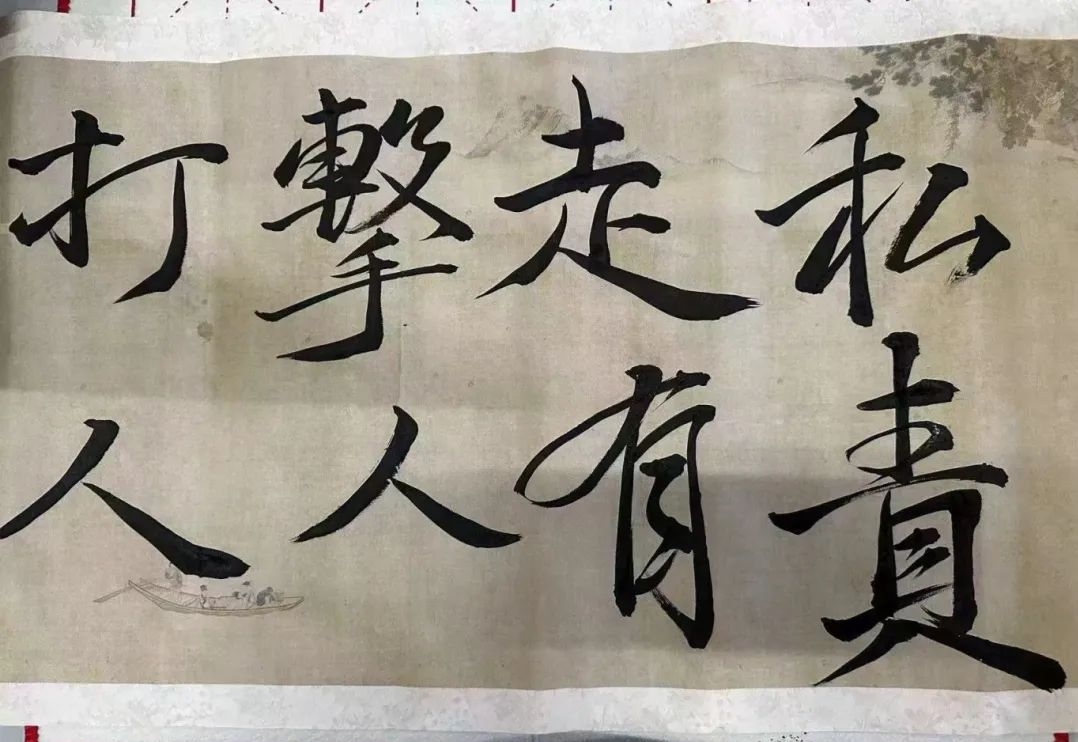 打擊走私
人人有責